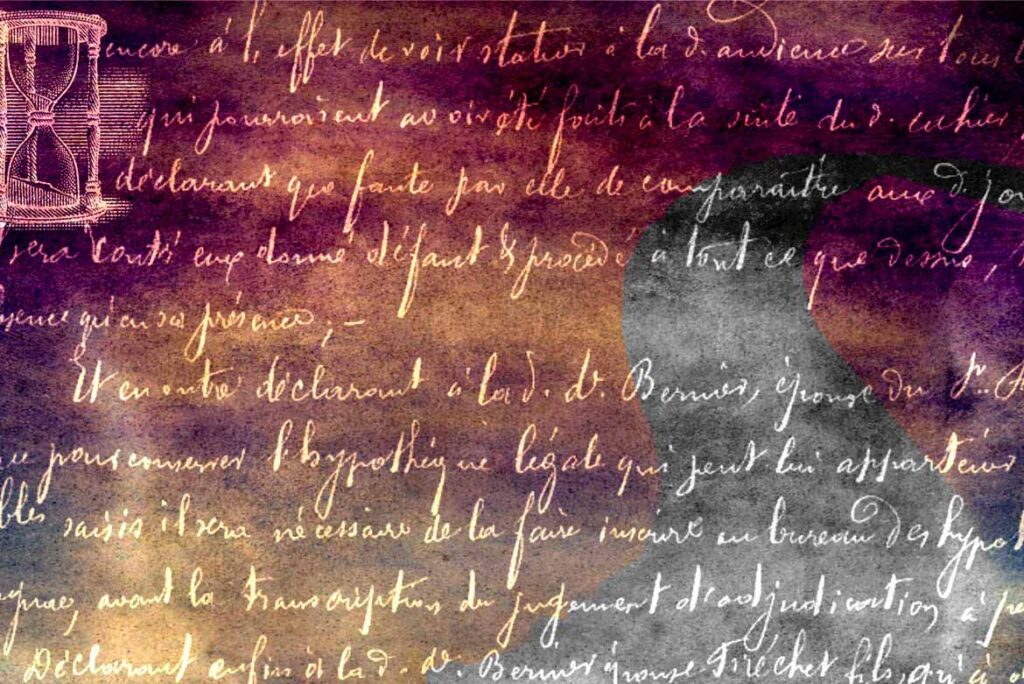 encore à l'effet de voir statuer à la d. audience sur tous
qui pourroient avoir été faits à la suite du d. cahier
déclarant que faute par elle de comparaitre aux d. jo
sera contr'eux donné défaut & procédé à tout ce que dessus,
qu'en sa présence ; —
Et en outre déclarant à la d. de. Bernier, épouse du Sr.
pour conserver l'hypothèque légale qui peut lui appartenir
bles saisis il sera nécessaire de la faire inscrire au bureau des hypoth
avant la transcription du jugement d'adjudication, à pe
Déclarant enfin à la d. de. Bernier épouse Tiréchet fils, qu'à